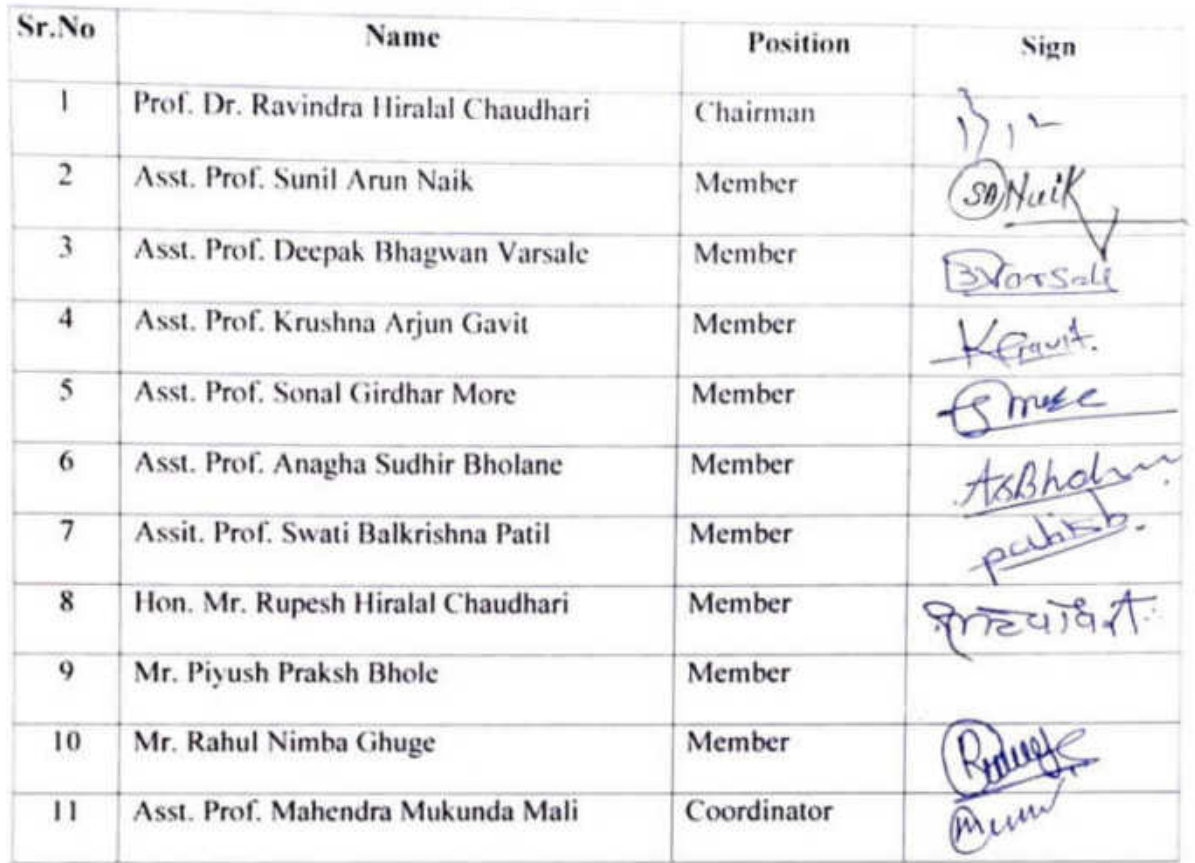 Sr.No Name Position Sign
1 Prof. Dr. Ravindra Hiralal Chaudhari Chairman
2 Asst. Prof. Sunil Arun Naik Member SANaik
3 Asst. Prof. Deepak Bhagwan Varsale Member Varsale
4 Asst. Prof. Krushna Arjun Gavit Member KGavit.
5 Asst. Prof. Sonal Girdhar More Member More
6 Asst. Prof. Anagha Sudhir Bholane Member
7 Assit. Prof. Swati Balkrishna Patil Member
8 Hon. Mr. Rupesh Hiralal Chaudhari Member
9 Mr. Piyush Praksh Bhole Member
10 Mr. Rahul Nimba Ghuge Member
11 Asst. Prof. Mahendra Mukunda Mali Coordinator